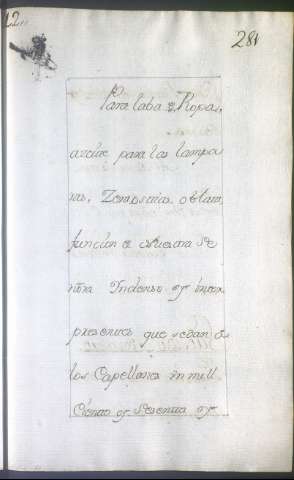 12
281
Para laba de Ropas,
aceite para las lampa
ras, Zera
funcion de Nuestra Se
ñora Indenso y inter
presentes que se dan a
los Capellanes un mill
Ciento y Setenta y